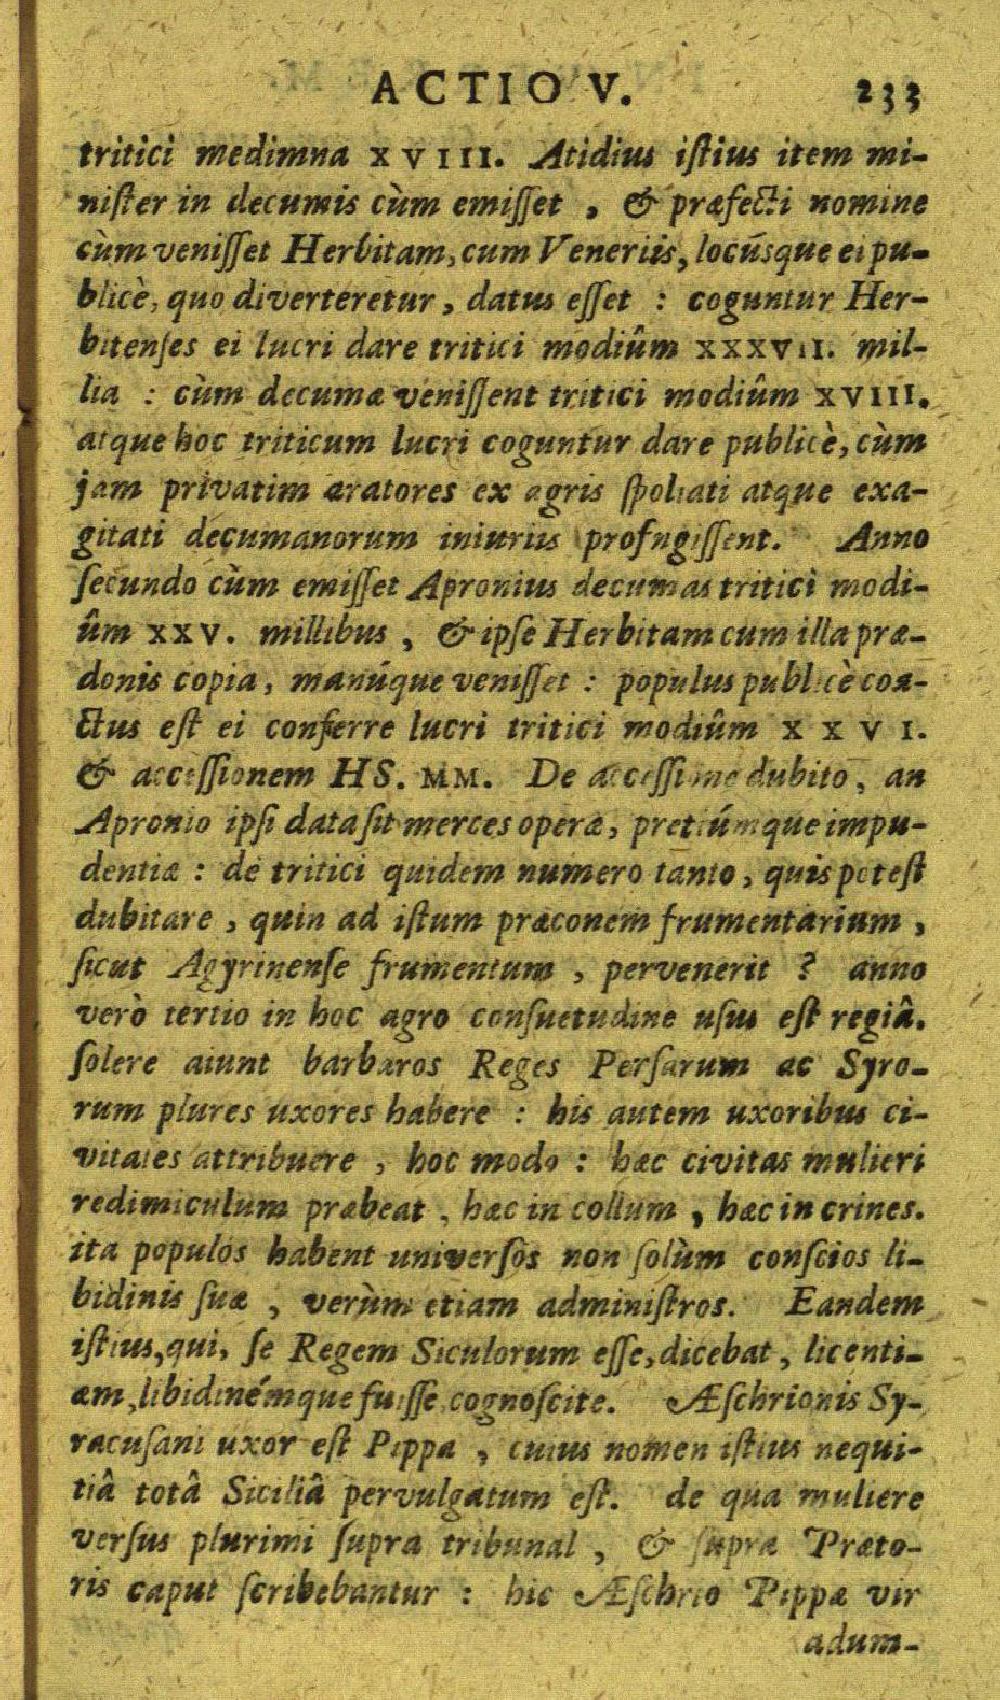 ACTIO V. 233
tritici medimna XVIII. Atidius iſtius item mi-
niſter in decumis cùm emiſſet, & præfecti nomine
cùm veniſſet Herbitam, cum Veneriis, locúsque ei pu-
blicè, quo diverteretur, datus eſſet : coguntur Her-
bitenſes ei lucri dare tritici modiûm XXXVII. mil-
lia : cùm decumæ veniſſent tritici modiûm XVIII.
atque hoc triticum lucri coguntur dare publicè, cùm
jam privatim aratores ex agris ſpoliati atque exa-
gitati decumanorum iniuriis profugiſſent. Anno
ſecundo cùm emiſſet Apronius decumas tritici modi-
ûm XXV. millibus, & ipſe Herbitam cum illa præ-
donis copia, manúque veniſſet : populus publicè coa-
ctus eſt ei conferre lucri tritici modiûm XXVI.
& acceſſionem HS. MM. De acceſſione dubito, an
Apronio ipſi data ſit merces operæ, pretiúmque impu-
dentiæ : de tritici quidem numero tanto, quis poteſt
dubitare, quin ad iſtum præconem frumentarium,
ſicut Agyrinenſe frumentum, pervenerit ? anno
verò tertio in hoc agro conſuetudine uſus eſt regiâ.
ſolere aiunt barbaros Reges Perſarum ac Syro-
rum plures uxores habere : his autem uxoribus ci-
vitates attribuere, hoc modo : hæc civitas mulieri
redimiculum præbeat, hæc in collum, hæc in crines.
ita populos habent univerſos non ſolùm conſcios li-
bidinis ſuæ, verùm etiam adminiſtros. Eandem
iſtius, qui, ſe Regem Siculorum eſſe, dicebat, licenti-
am, libidinémque fuiſſe cognoſcite. Æſchrionis Sy-
racuſani uxor eſt Pippa, cuius nomen iſtius nequi-
tiâ totâ Siciliâ pervulgatum eſt. de qua muliere
verſus plurimi ſupra tribunal, & ſupra Præto-
ris caput ſcribebantur : hic Æſchrio Pippæ vir
adum-